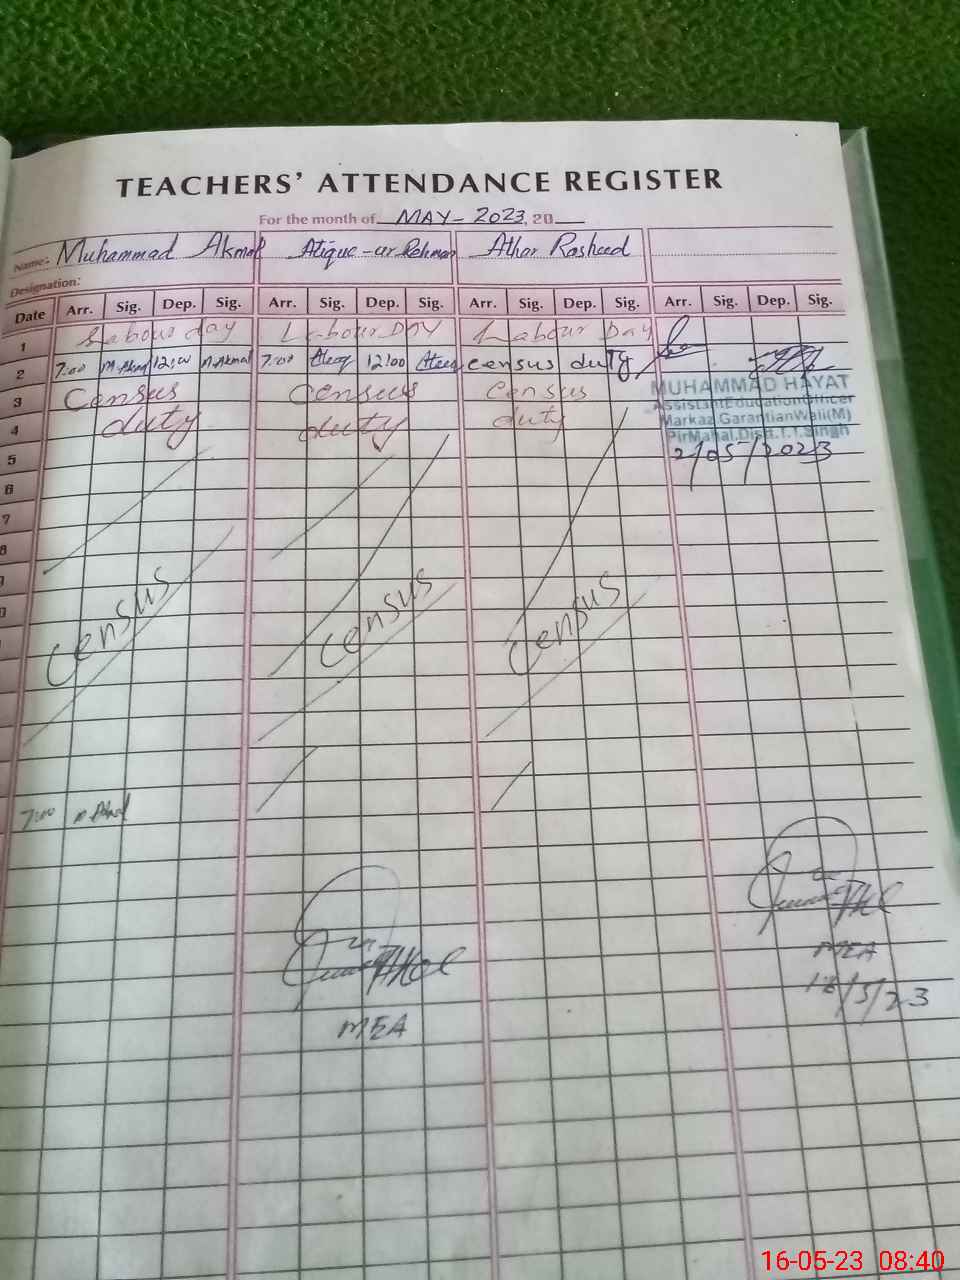 TEACHERS' ATTENDANCE REGISTER
For the month of MAY - 2023, 20
Name:- Muhammad Akmal Atique-ur-Rehman Athar Rasheed
Designation:
Date Arr. Sig. Dep. Sig. Arr. Sig. Dep. Sig. Arr. Sig. Dep. Sig. Arr. Sig. Dep. Sig.
1 Labour day Labour DAY Labour Day
2 7:00 M.Akmal 12:00 M.Akmal 7:00 Ateeq 12:00 Ateeq census duty
3 Census Census Census
4 duty duty duty
MUHAMMAD HAYAT
Assistant Education Officer
Markaz Garantian Wali(M)
PirMahal.Distt.T.T.Singh
2/05/2023
5
6
7
8
census census census
7:00 M.Akmal
MEA
MEA
16/5/23
16-05-23 08:40